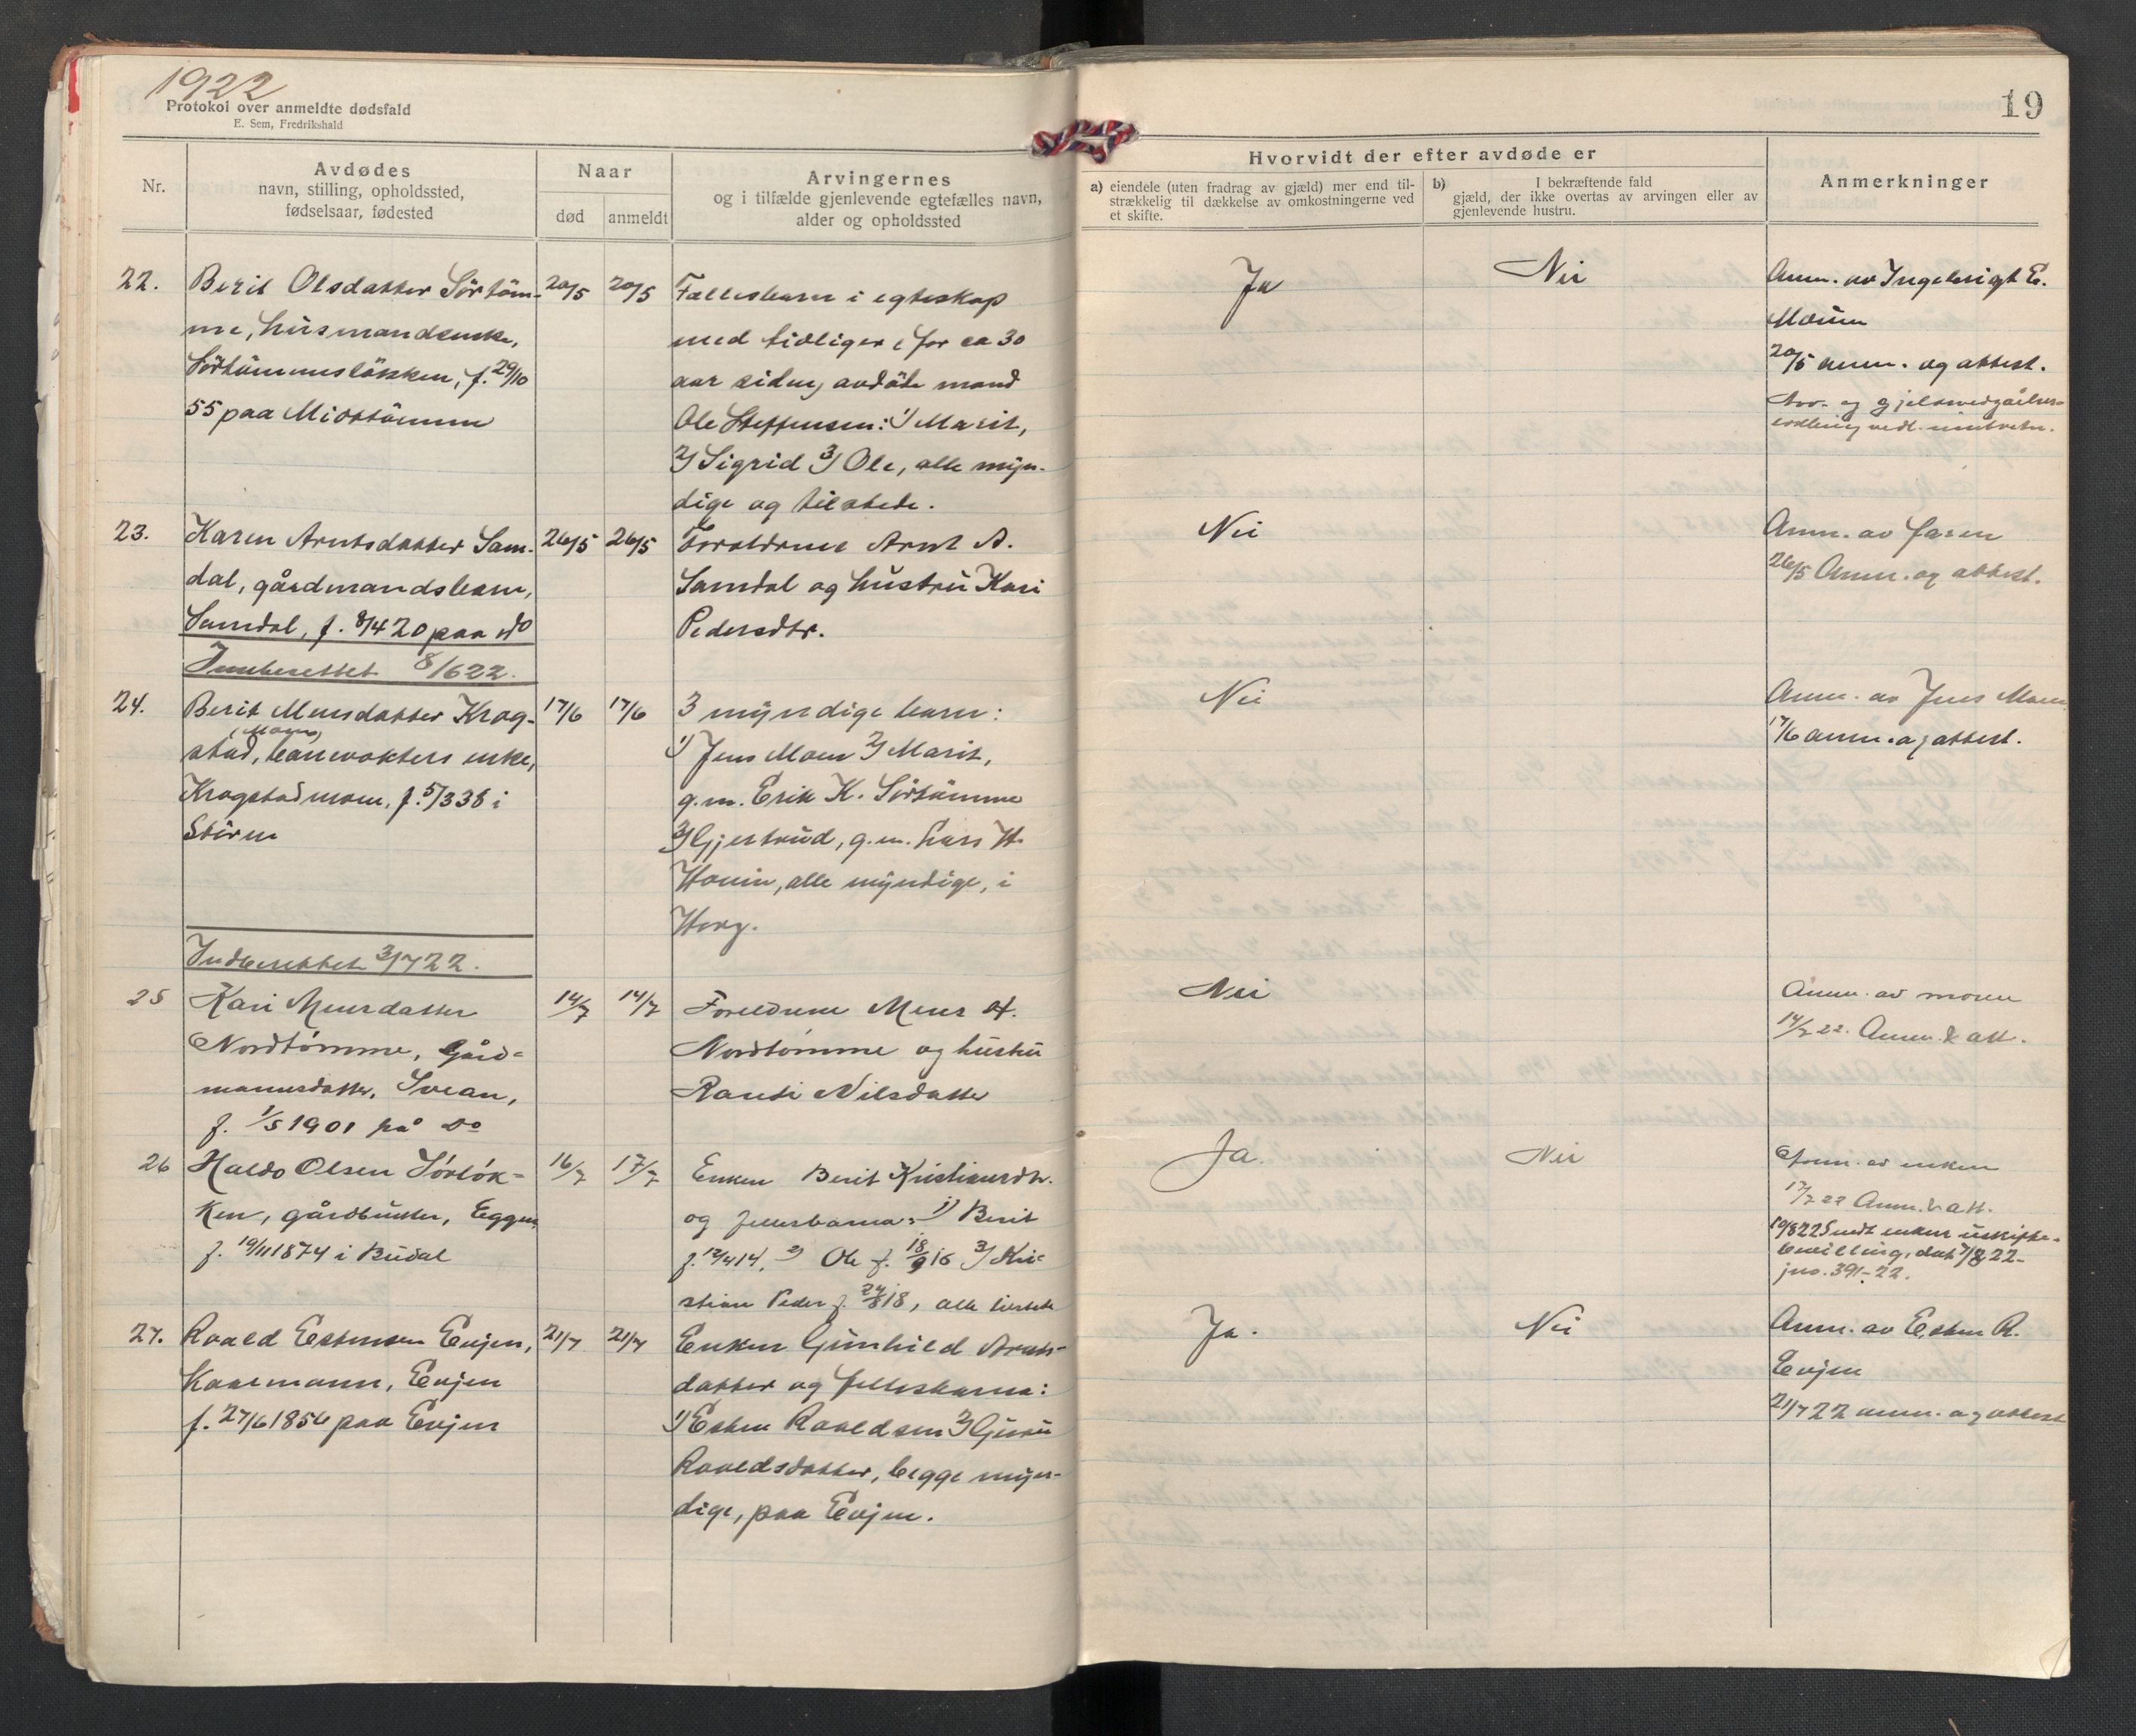 1922
Protokol over anmeldte dødsfald
E. Sem, Fredrikshald
19
Nr.
Avdødes
navn, stilling, opholdssted,
fødselsaar, fødested
Naar
død
anmeldt
Arvingernes
og i tilfælde gjenlevende egtefælles navn,
alder og opholdssted
Hvorvidt der efter avdøde er
a) eiendele (uten fradrag av gjæld) mer end til-
strækkelig til dækkelse av omkostningerne ved
et skifte.
b) I bekræftende fald
gjæld, der ikke overtas av arvingen eller av
gjenlevende hustru.
Anmerkninger
22.
Berit Olsdatter Sörtöm-
me, husmandsenke,
Sörtömmesløkken, f. 29/10
55 paa Midttömme
20/5
20/5
Fællesbarn i egteskap
med tidligere, for ca 30
aar siden, avdöde mand
Ole Steffensen: 1) Marit,
2) Sigrid 3) Ole, alle myn-
dige og tilstede.
Ja
Nei
Anm. av Ingebrigt E.
Moum
20/5 anm. og attest.
Arv- og gjeldsvedgåelses-
23.
Karen Arntsdatter Sam-
dal, gårdmandsbarn,
Samdal, f. 8/4 20 paa do
26/5
26/5
Foreldrene Arnt A.
Samdal og hustru Kari
Pedersdtr.
Nei
Anm. av faren
26/5 Anm. og attest.
Innberettet 8/6 22.
24.
Berit Mensdatter Krog-
(Moen)
stad, banevokters enke,
Krogstadmoen, f. 5/3 38 i
Stören
17/6
17/6
3 myndige barn:
1) Jens Moen 2) Marit,
g.m. Erik K. Sörtömme
3) Gjertrud, g.m. Lars H.
Hovin, alle myndige, i
Horg.
Nei
Anm. av Jens Moen
17/6 anm. og attest.
Indberettet 3/7 22.
25
Kari Mensdatter
Nordtömme, Gård-
mannsdatter, Svean,
f. 1/5 1901 på do
14/7
14/7
Foreldrene Mens H.
Nordtömme og hustru
Randi Nilsdatter
Nei
Anm. av moren
14/7 22. Anm. & att.
26
Haldo Olsen Sörlök-
ken, gårdbruker, Eggen
f. 19/11 1874 i Budal
16/7
17/7
Enken Berit Kristiansdtr.
og fellesbarna: 1) Berit
f. 12/4 14. 2) Ole f. 18/9 16 3) Kri-
stian Peder f. 24/8 18, alle tilstede
Ja.
Nei
Anm. av enken
17/7 22 Anm. & att.
19/8 22 Sendt enken uskifte-
bevilling, dat. 7/8 22-
jno. 391-22.
27.
Roald Estensen Evjen,
Kaarmann, Evjen
f. 27/6 1856 paa Evjen
21/7
21/7
Enken Gunhild Arnts-
datter og fellesbarna:
1) Esten Roaldsen 2) Guru
Roaldsdatter, begge myn-
dige, paa Evjen.
Ja.
Nei
Anm. av Esten R.
Evjen
21/7 22 anm. og attest